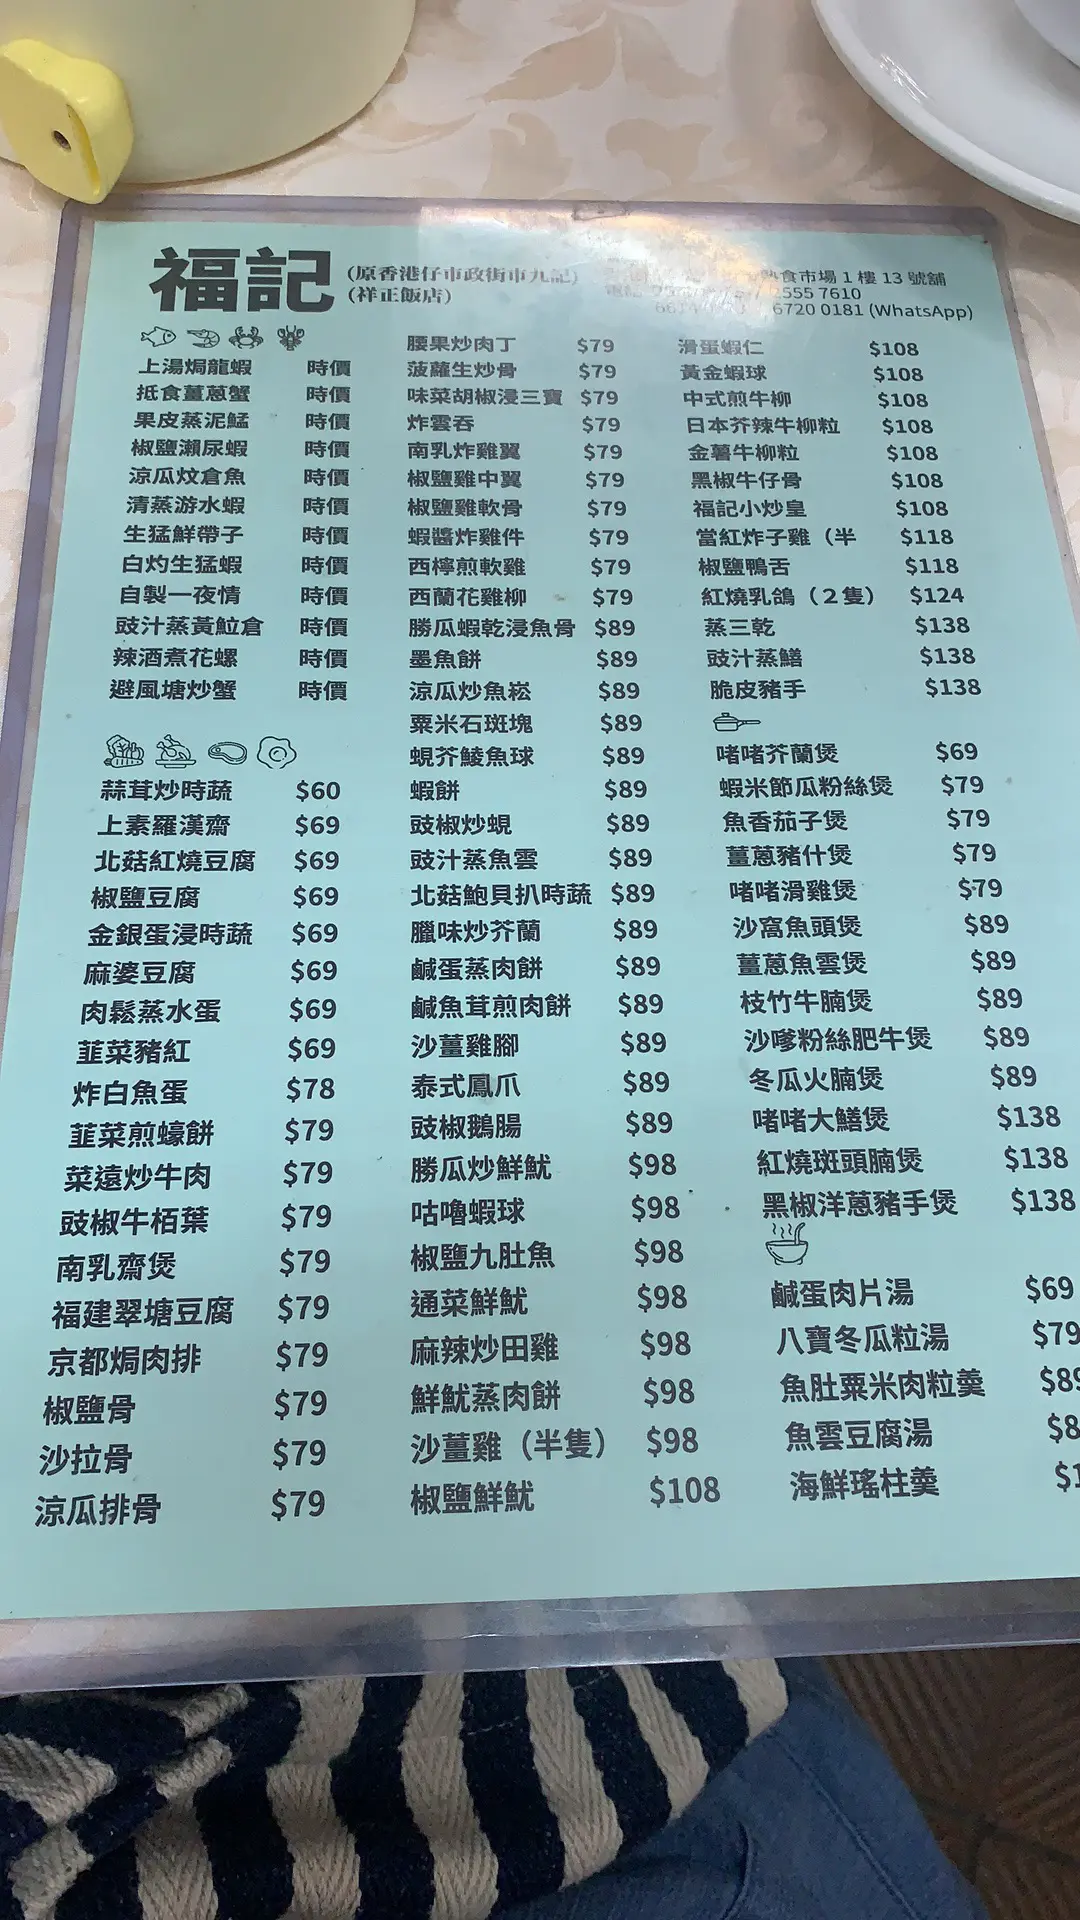 福記
(原香港仔市政街市九記)
(祥正飯店)
熟食市場 1 樓 13 號舖
2555 7610
6720 0181 (WhatsApp)
上湯焗龍蝦 時價
抵食薑蔥蟹 時價
果皮蒸泥鯭 時價
椒鹽瀨尿蝦 時價
涼瓜炆倉魚 時價
清蒸游水蝦 時價
生猛鮮帶子 時價
白灼生猛蝦 時價
自製一夜情 時價
豉汁蒸黃魶倉 時價
辣酒煮花螺 時價
避風塘炒蟹 時價
蒜茸炒時蔬 $60
上素羅漢齋 $69
北菇紅燒豆腐 $69
椒鹽豆腐 $69
金銀蛋浸時蔬 $69
麻婆豆腐 $69
肉鬆蒸水蛋 $69
韮菜豬紅 $69
炸白魚蛋 $78
韮菜煎蠔餅 $79
菜遠炒牛肉 $79
豉椒牛栢葉 $79
南乳齋煲 $79
福建翠塘豆腐 $79
京都焗肉排 $79
椒鹽骨 $79
沙拉骨 $79
涼瓜排骨 $79
腰果炒肉丁 $79
菠蘿生炒骨 $79
味菜胡椒浸三寶 $79
炸雲吞 $79
南乳炸雞翼 $79
椒鹽雞中翼 $79
椒鹽雞軟骨 $79
蝦醬炸雞件 $79
西檸煎軟雞 $79
西蘭花雞柳 $79
勝瓜蝦乾浸魚骨 $89
墨魚餅 $89
涼瓜炒魚崧 $89
粟米石斑塊 $89
蜆芥鯪魚球 $89
蝦餅 $89
豉椒炒蜆 $89
豉汁蒸魚雲 $89
北菇鮑貝扒時蔬 $89
臘味炒芥蘭 $89
鹹蛋蒸肉餅 $89
鹹魚茸煎肉餅 $89
沙薑雞腳 $89
泰式鳳爪 $89
豉椒鵝腸 $89
勝瓜炒鮮魷 $98
咕嚕蝦球 $98
椒鹽九肚魚 $98
通菜鮮魷 $98
麻辣炒田雞 $98
鮮魷蒸肉餅 $98
沙薑雞（半隻） $98
椒鹽鮮魷 $108
滑蛋蝦仁 $108
黃金蝦球 $108
中式煎牛柳 $108
日本芥辣牛柳粒 $108
金薯牛柳粒 $108
黑椒牛仔骨 $108
福記小炒皇 $108
當紅炸子雞（半 $118
椒鹽鴨舌 $118
紅燒乳鴿（２隻） $124
蒸三乾 $138
豉汁蒸鱔 $138
脆皮豬手 $138
啫啫芥蘭煲 $69
蝦米節瓜粉絲煲 $79
魚香茄子煲 $79
薑蔥豬什煲 $79
啫啫滑雞煲 $79
沙窩魚頭煲 $89
薑蔥魚雲煲 $89
枝竹牛腩煲 $89
沙嗲粉絲肥牛煲 $89
冬瓜火腩煲 $89
啫啫大鱔煲 $138
紅燒斑頭腩煲 $138
黑椒洋蔥豬手煲 $138
鹹蛋肉片湯 $69
八寶冬瓜粒湯 $79
魚肚粟米肉粒羹 $89
魚雲豆腐湯 $8
海鮮瑤柱羹 $1